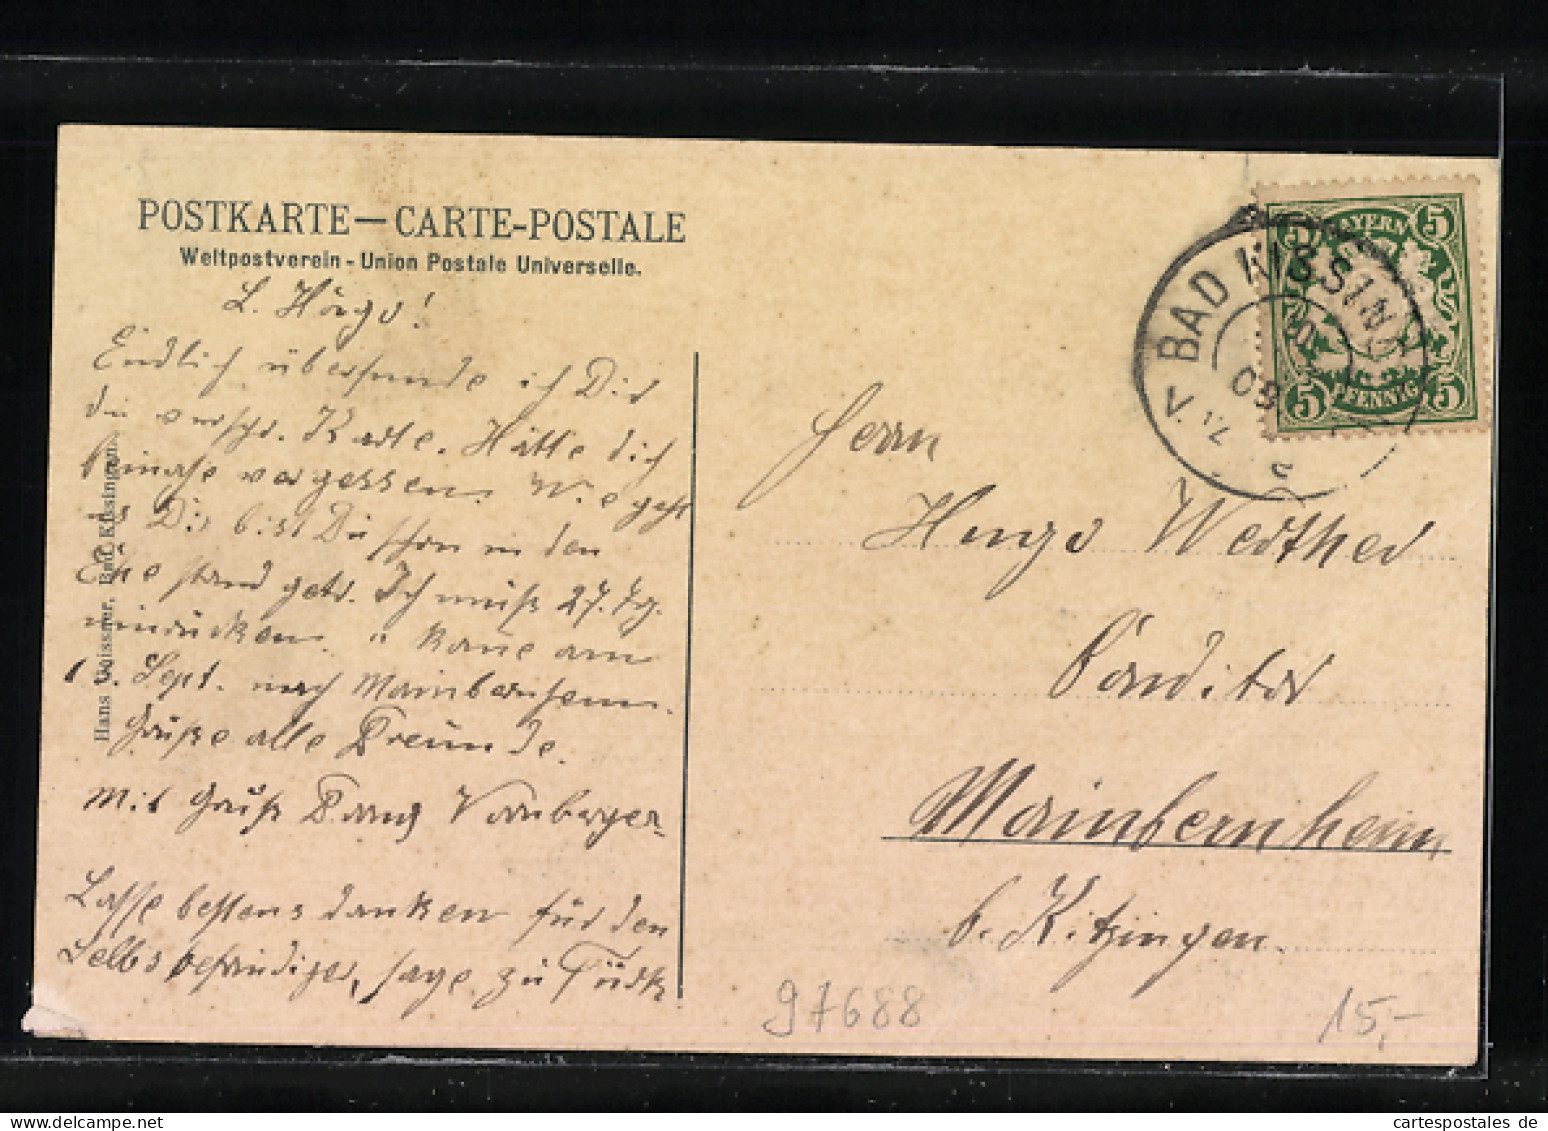 POSTKARTE — CARTE-POSTALE
Weltpostverein - Union Postale Universelle.
L. Hugo!
Endlich übersende ich Dir
die versp. Karte. Hätte dich
beinahe vergessen. Wie geht
es Dir bist Du schon in den
Ehestand getr. Ich muß 27. Aug.
einrücken. u kome am
Sept. nach Mainbernheim.
Grüße alle Freunde.
Mit Gruß Franz Vornberger
Lasse bestens danken für den
Selbstbefriediger, sage zu
Hans Weissner, Bad Kissingen.
BAD KISSINGEN
BAYERN
5 5
5 5
PFENNIG
Herrn
Hugo Werther
Conditor
Mainbernheim
b. Kitzingen.
97688
15,-
cartespostales de